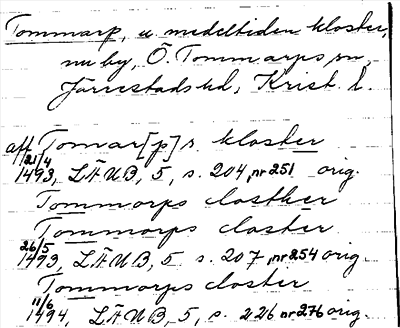 Tommarp, u medeltiden kloster,
nu by, Ö. Tommarps sn,
Järrestads hd, Krist. l.
aff Tomar[p]s kloster
21/4 1493, LÄUB, 5, s. 204, nr 251 orig.
Tommorps closther
Tommorps closter
26/5 1493, LÄUB, 5 s. 207, nr 254 orig.
Tommorps closter
11/6 1494, LÄUB, 5, s. 226 nr 276 orig.